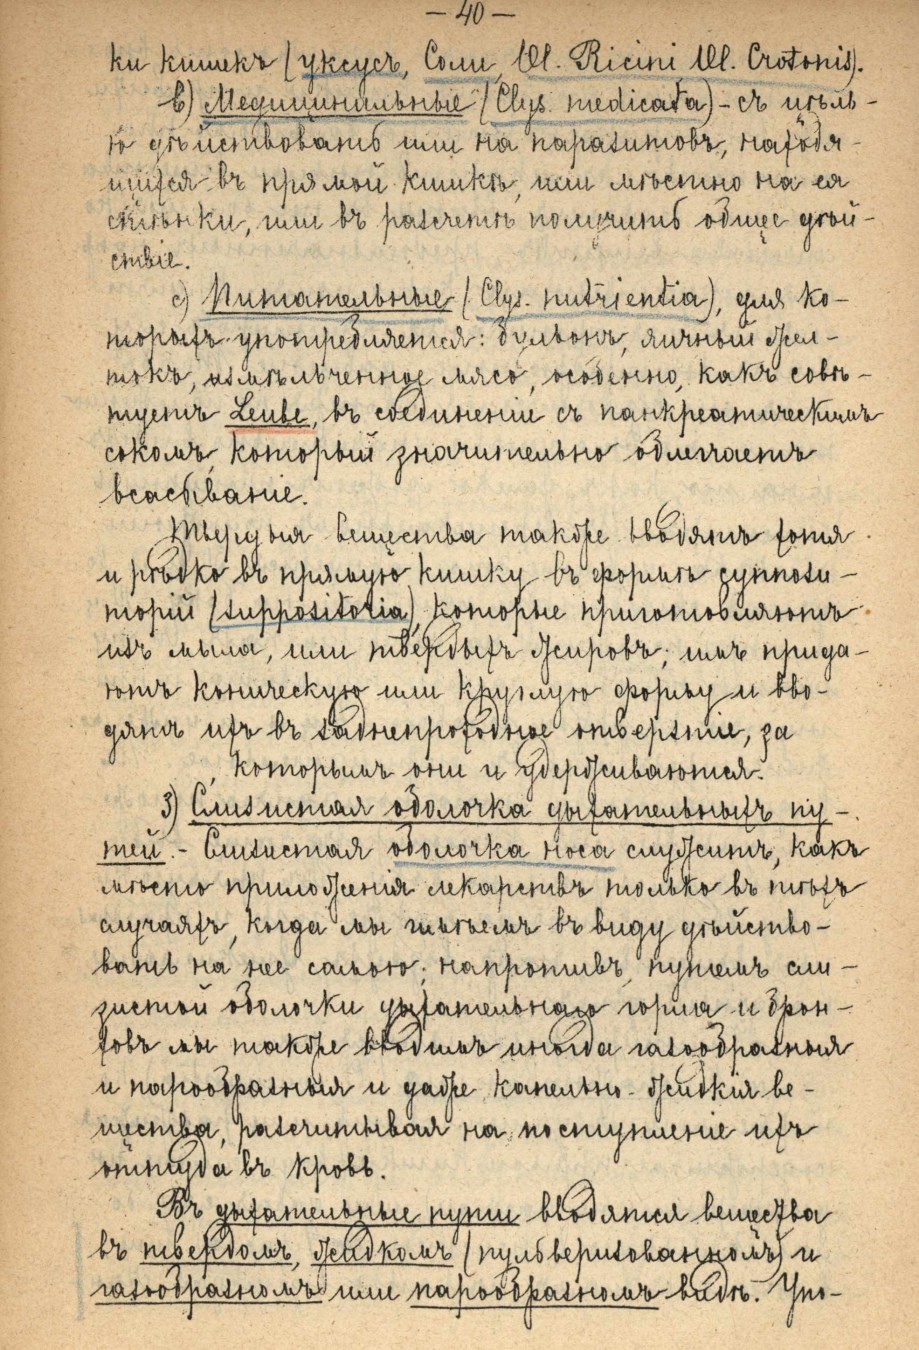 — 40 —
ки кишекъ (уксусъ, Соли, Ol. Ricini Ol. Crotonis).
b) Медицинальные (Clys. medicata) - съ цѣль-
ю дѣйствовать или на паразитовъ, находя-
щихся въ прямой кишкѣ, или мѣстно на ея
стѣнки, или въ разсчетѣ получить общее дѣй-
ствіе.
c) Питательные (Clys. nutrientia), для ко-
торыхъ употребляется: бульонъ, яичный жел-
токъ, измѣльченное мясо, особенно, какъ совѣ-
туетъ Leube, въ соединеніи съ панкреатическимъ
сокомъ, который значительно облегчаетъ
всасываніе.
Твердыя вещества также вводятъ хотя
и рѣдко въ прямую кишку въ формѣ суппози-
торій (suppositoria), которые приготовляютъ
изъ мыла, или твердыхъ жировъ; имъ прида-
ютъ коническую или круглую форму и вво-
дятъ ихъ въ заднепроходное отверзтіе, за
которымъ они и удерживаются.
3) Слизистая оболочка дыхательныхъ пу-
тей. - Слизистая оболочка носа служитъ, какъ
мѣсто приложенія лекарствъ только въ тѣхъ
случаяхъ, когда мы имѣемъ въ виду дѣйство-
вать на нее самою; напротивъ, путемъ сли-
зистой оболочки дыхательнаго горла и брон-
ховъ мы также вводимъ иногда газообразныя
и парообразныя и даже капельно-жидкія ве-
щества, разсчитывая на поступленіе ихъ
оттуда въ кровь.
Въ дыхательные пути вводятся вещества
въ твердомъ, жидкомъ (пульверизованномъ) и
газообразномъ или парообразномъ видѣ. Упо-